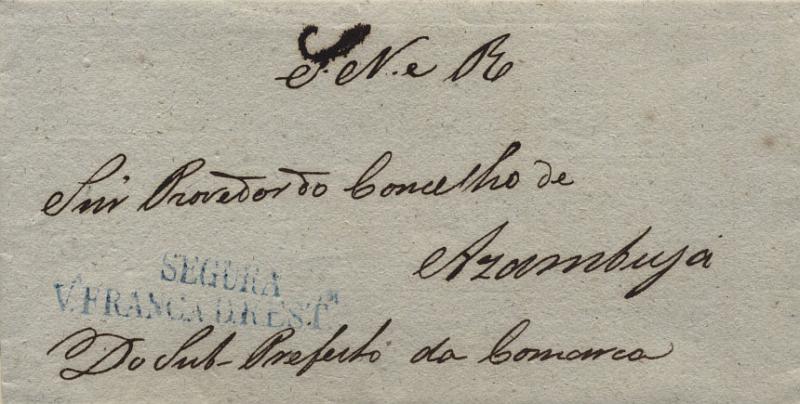 S. N. e R
Snr Provedor do Concelho de
Azambuja
SEGURA
V. FRANCA D. REST.ᴬ
Do Sub-Prefeito da Comarca